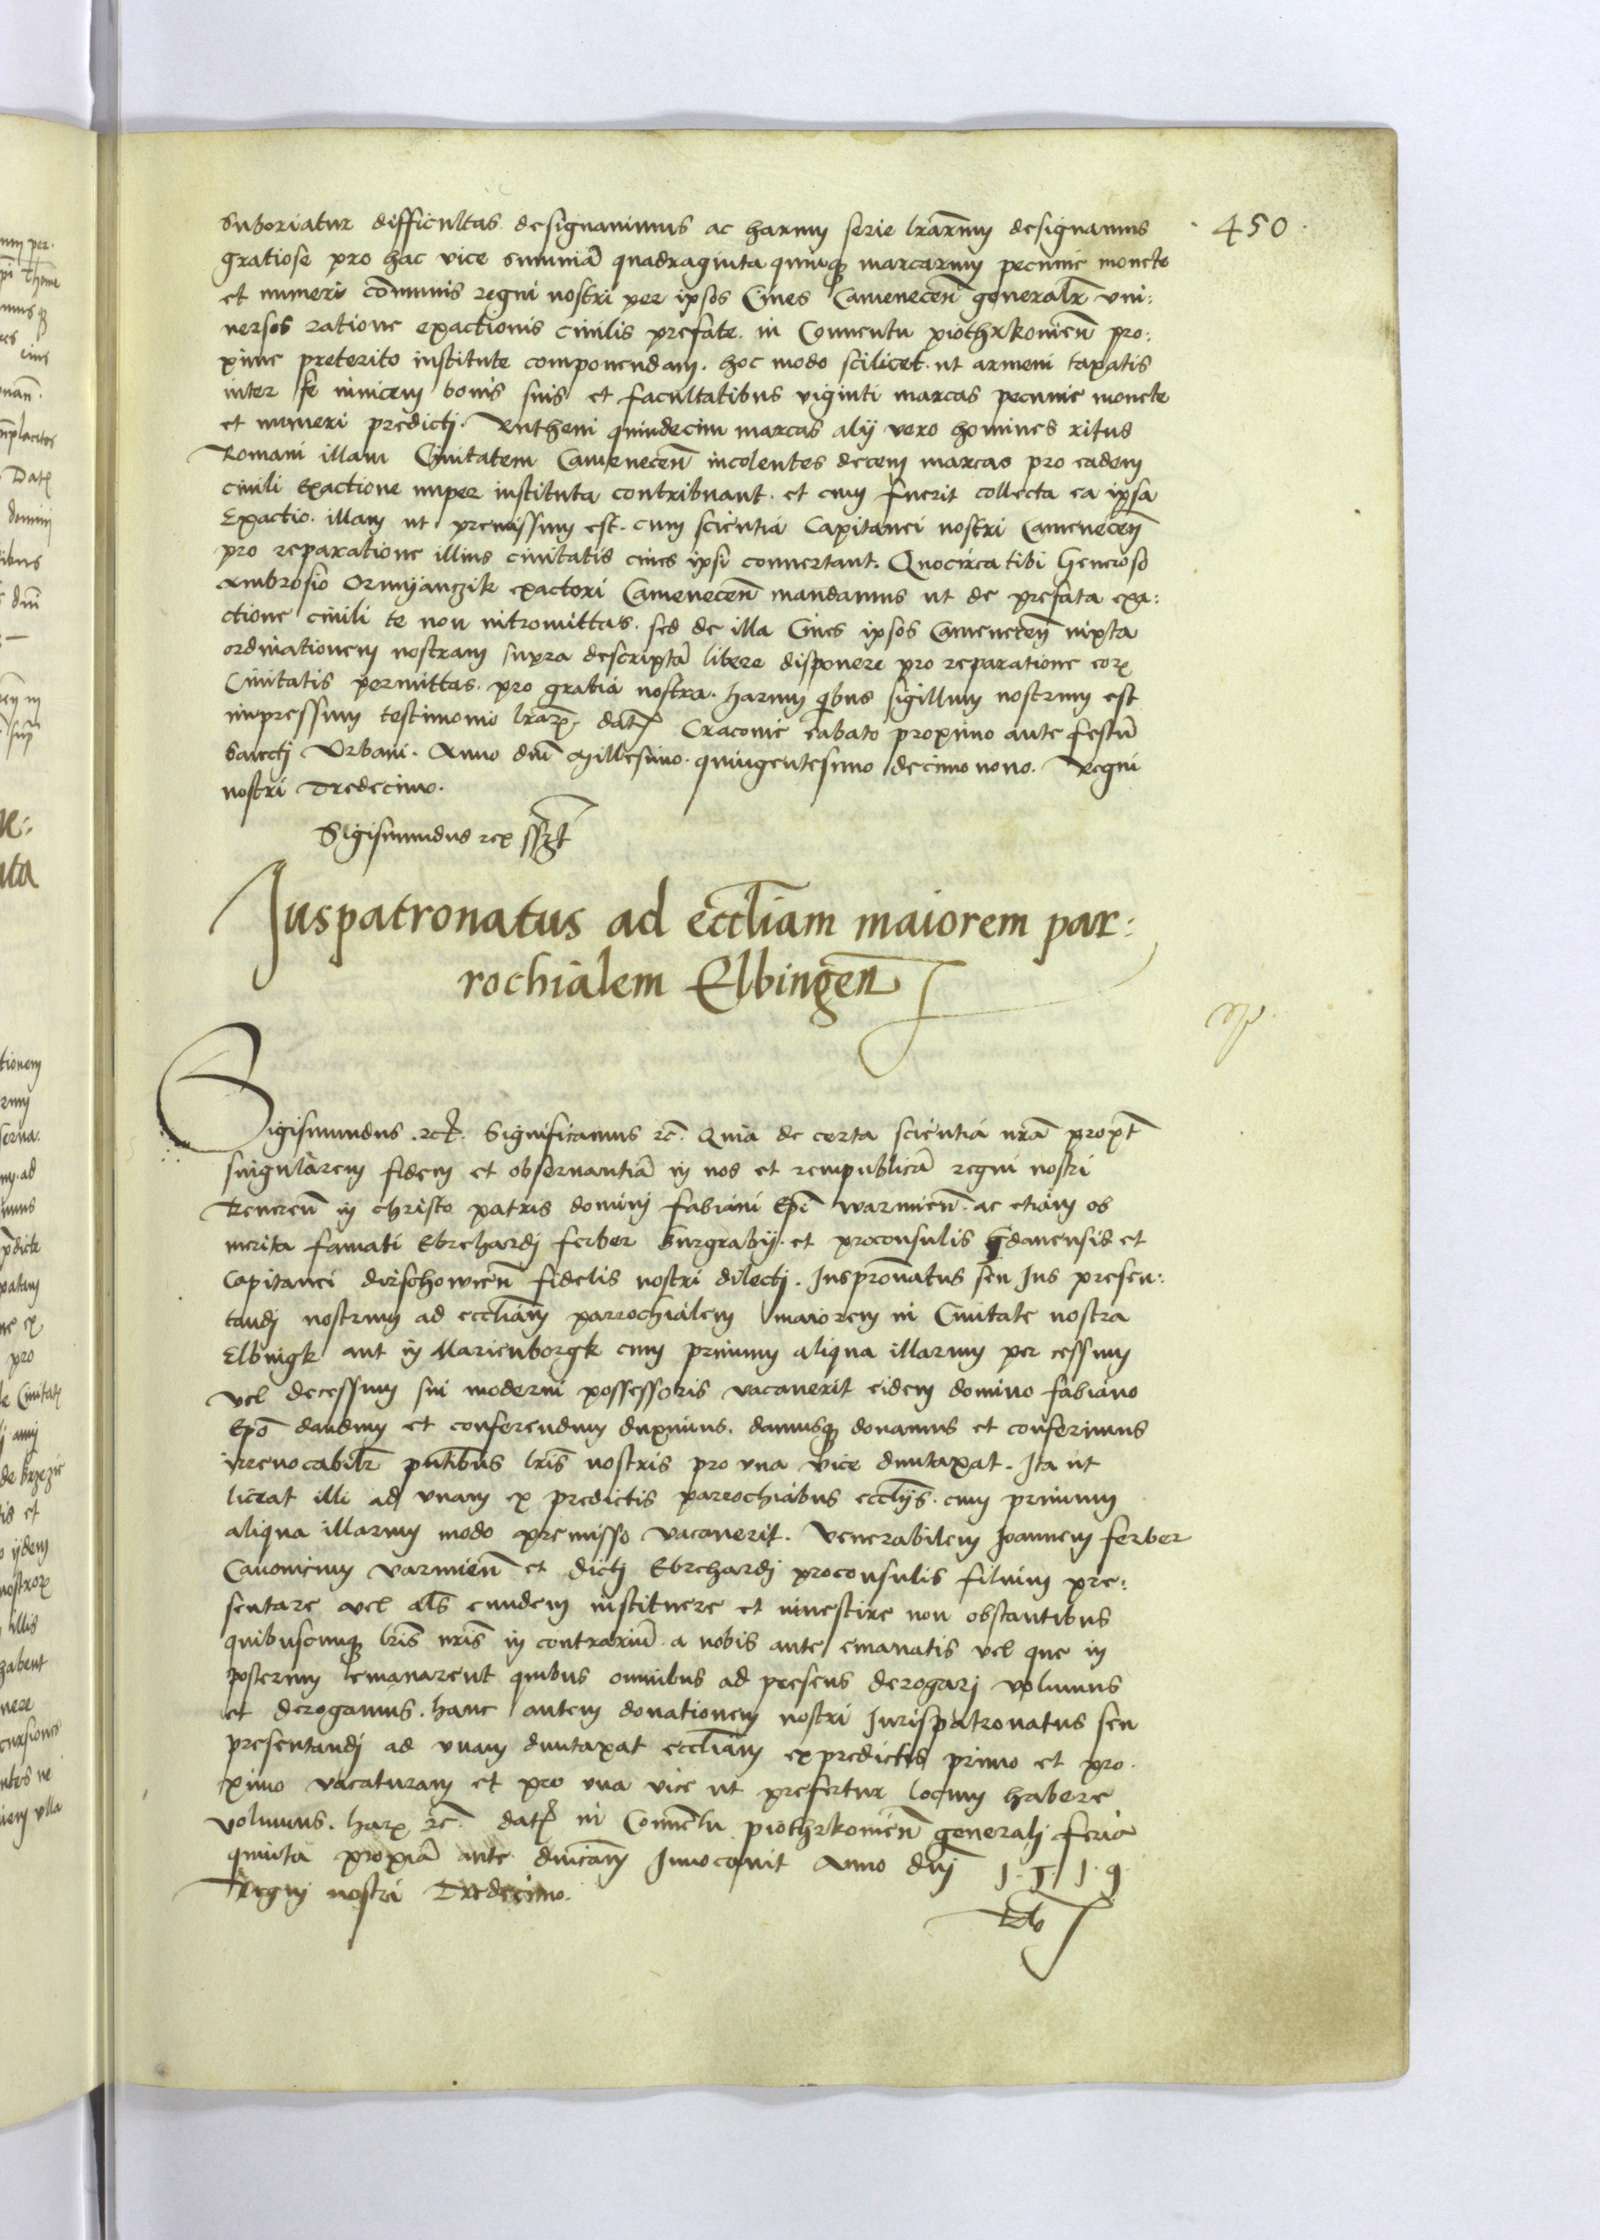 450
suboriatur difficultas designavimus ac harum serie lrarum designamus
gratiose pro hac vice summā quadraginta quinq marcarum pecunie monete
et numeri cōmunis regni nostri per ipsos Cives Camenecen̄ generalr̄ uni:
versos ratione exactionis civilis prefate in Conventu piothrkovien̄ pro:
xime preterito institute componendam. hoc modo scilicet. ut armeni taxatis
inter se invicem bonis suis et facultatibus viginti marcas pecunie monete
et numeri predicti. Rutheni quindecim marcas alii vero homines ritus
Romani illam Civitatem Camenecen̄ incolentes decem marcas pro eadem
civili Exactione nuper instituta contribuant. et cum fuerit collecta ea ipsa
Exactio. illam ut premissum est. cum scientia Capitanei nostri Camenecen̄
pro reparatione illius civitatis cives ipsi convertant. Quocirca tibi Generoso
Ambrosio Ormijanczik exactori Camenecen̄ mandamus ut de prefata exa:
ctione civili te non intromittas. sed de illa Cives ipsos Camenecen̄ iuxta
ordinationem nostram supra descriptā libere disponere pro reparatione eoꝝ
Civitatis permittas. pro gratia nostra. harum qbus sigillum nostrum est
impressum testimonio lraꝝ. datꝭ Cracovie sabato proximo ante festū
Sancti Urbani. Anno dni Millesimo. quingentesimo decimo nono. Regni
nostri Tredecimo.
Sigismundus rex sszt
Iuspatronatus ad eccliam maiorem par:
rochialem Elbingen̄
Sigismundus. rct. Significamus rc̄. Quia de certa scientia nr̄a propt̄
singularem fidem et observantiā in nos et rempublicā regni nostri
Reveren̄ in christo patris domini fabiani Ep̄i warmien̄. ac etiam ob
merita famati Ebrehardi ferber burgrabii. et proconsulis Gdanensis et
Capitanei dirschowien̄ fidelis nostri dilecti. Iuspron̄atus seu Ius presen:
tandi nostrum ad eccliam parrochialem maiorem in Civitate nostra
Elbingk aut in Marienborgk cum primum aliqua illarum per cessum
vel decessum sui moderni possessoris vacaverit eidem domino fabiano
Ep̄o dandum et conferendum duximus. damusq donamus et conferimus
irrevocabilr̄ pn̄tibus lris nostris pro una vice duntaxat. Ita ut
liceat illi ad unam ex predictis parrochiabus ecclijs. cum primum
aliqua illarum modo premisso vacaverit. Venerabilem Joannem ferber
Canonicum varmien̄ et dicti Ebrehardi proconsulis filium pre:
sentare vel als̄ eundem instituere et investire non obstantibus
quibuscunq lris nris in contrariū a nobis ante emanatis vel que in
posterum emanarent quibus omnibus ad presens derogari volumus
et derogamus. hanc autem donationem nostri Iurispatronatus seu
presentandi ad unam duntaxat eccliam ex predictis primo et pro
ximo vacaturam et pro una vice ut prefertur locum habere
volumus. harꝝ rc̄. datꝭ in Conventu piothrkovien̄ generali feria
quinta proxiā ante dnicam Invocavit Anno dni 1.5.1.9.
Regni nostri Tredecimo.